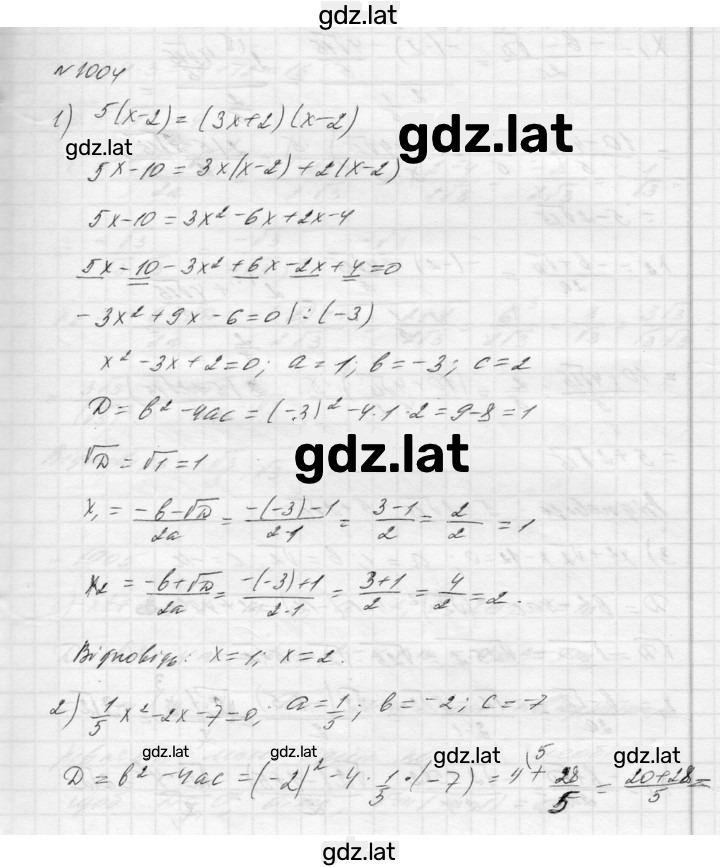 gdz.lat
№1004
1) 5(x-2)=(3x+2)(x-2)
gdz.lat
gdz.lat
5x-10=3x(x-2)+2(x-2)
5x-10=3x²-6x+2x-4
5x-10-3x²+6x-2x+4=0
-3x²+9x-6=0|:(-3)
x²-3x+2=0; a=1; b=-3; c=2
D=b²-4ac=(-3)²-4·1·2=9-8=1
gdz.lat
√D=√1=1
x₁=(-b-√D)/2a=(-(-3)-1)/2·1=(3-1)/2=2/2=1
x₂=(-b+√D)/2a=(-(-3)+1)/2·1=(3+1)/2=4/2=2.
Відповідь: x=1; x=2.
2) 1/5x²-2x-7=0; a=1/5; b=-2; c=-7
gdz.lat gdz.lat gdz.lat
D=b²-4ac=(-2)²-4·1/5·(-7)=4⁽⁵+28/5=(20+28)/5=
gdz.lat